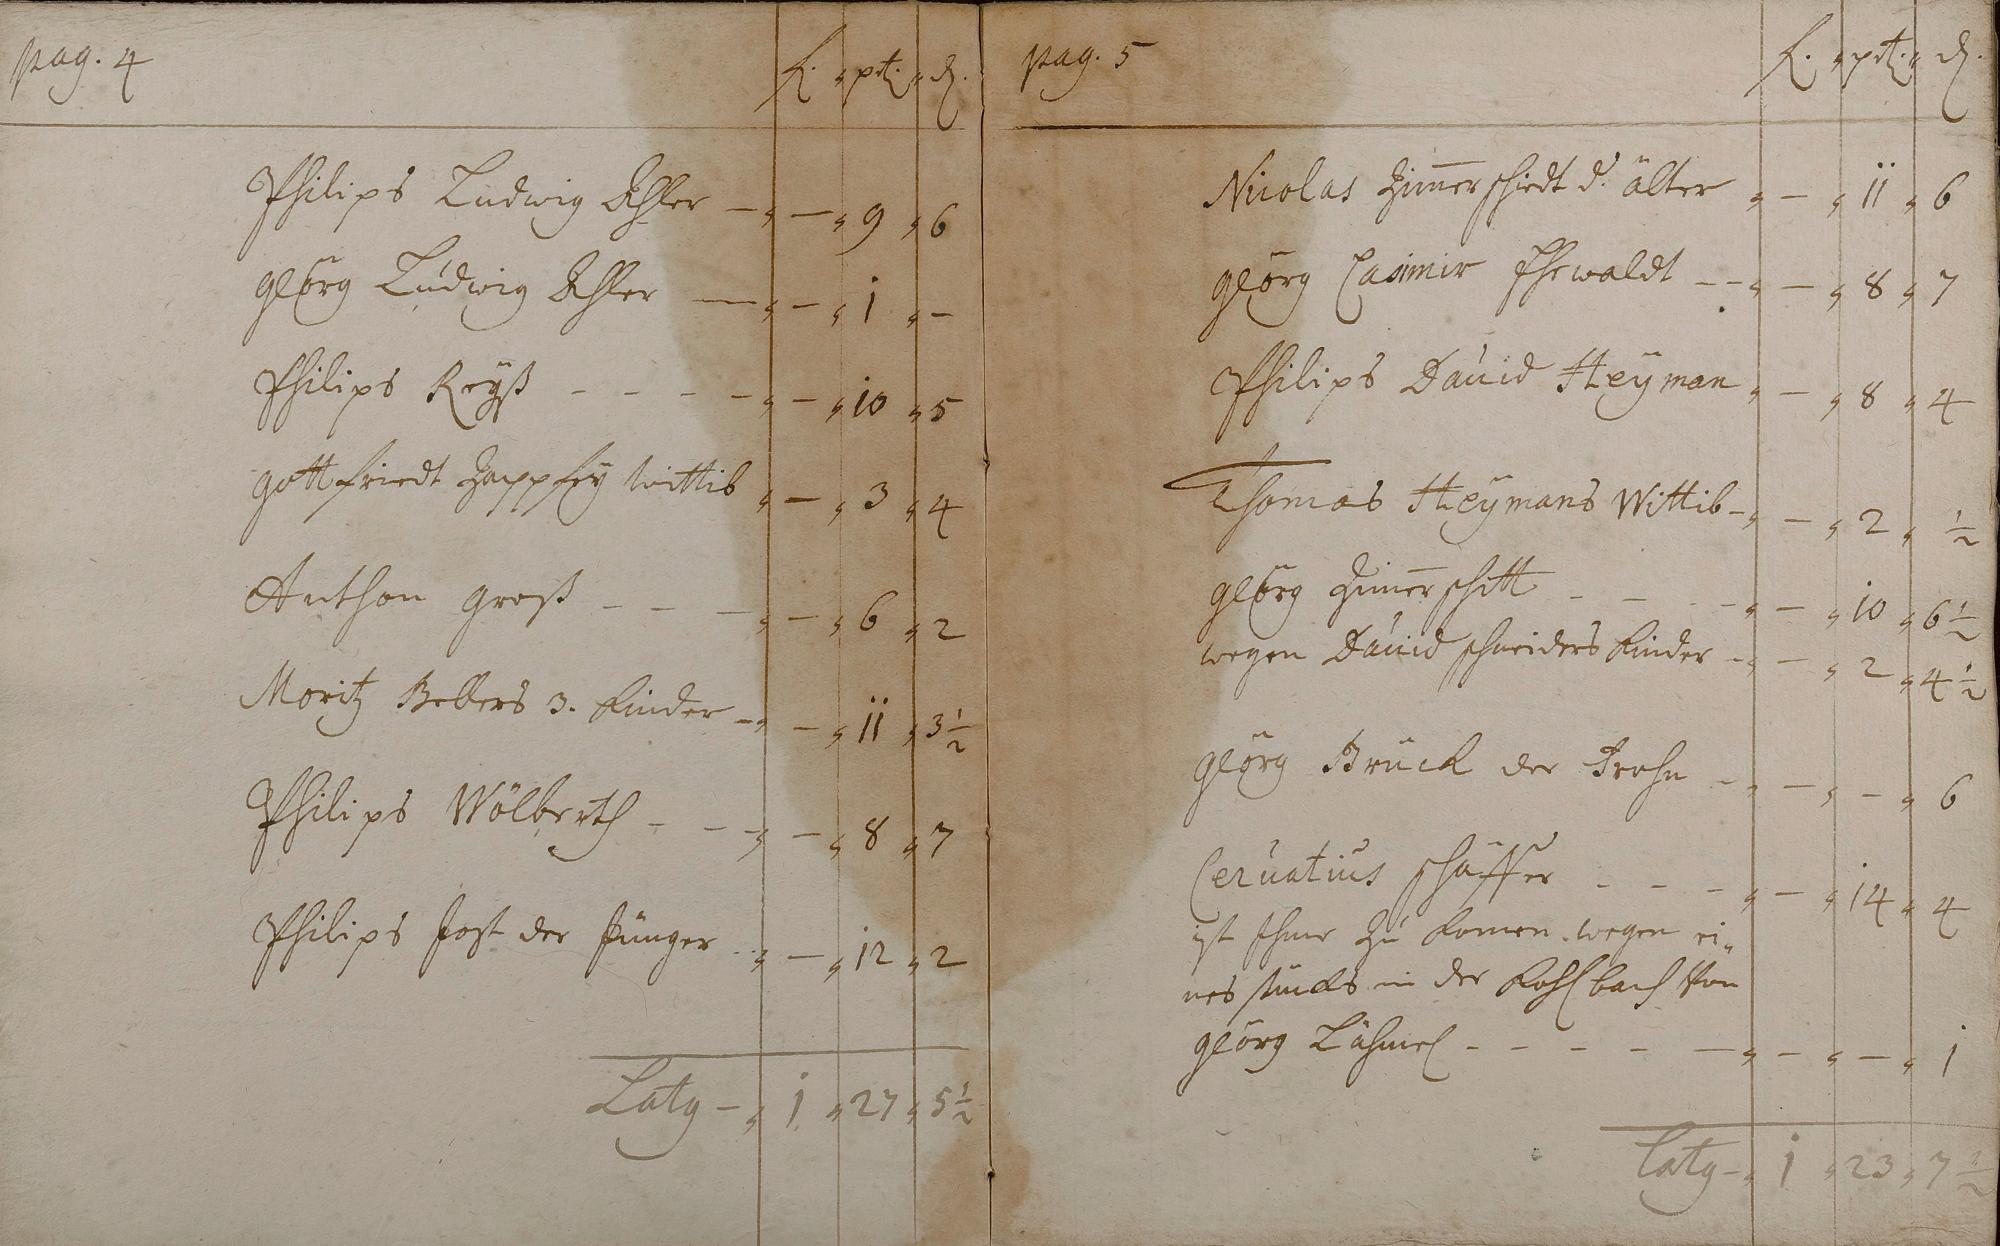 pag. 4
Philips Ludwig Ehler — „ — „ 9 „ 6
geörg Ludwig Ehler — „ — „ 1 „ —
Philips Reyß - - - - „ — „ 10 „ 5
gottfriedt Wittib „ — „ 3 „ 4
Anthon groß - - - „ — „ 6 „ 2
Moritz Bellers 3. Kinder - „ — „ 11 „ 3 ½
Philips Wölberth - - - „ — „ 8 „ 7
Philips Jost der Jünger - „ — „ 12 „ 2
Latg — „ 1 „ 27 „ 5 ½
pag. 5
Nicolas Zimerschiedt d. älter „ — „ 11 „ 6
geörg Casimir Ehewaldt - - „ — „ 8 „ 7
Philips David Heyman „ — „ 8 „ 4
Thomas Heymans Wittib - „ — „ 2 „ ½
geörg Zimerschitt - - - - „ — „ 10 „ 6 ½
wegen David schneiders Kinder - „ — „ 2 „ 4 ½
geörg Brück der - „ — „ — „ 6
Ceruatius schäffer - - - „ — „ 14 „ 4
ist Ihme zu Komen wegen ei„
nes stücks in der Kohlbach Von
geörg Lähmel - - - - — „ — „ — „ 1
Latg - „ 1 „ 23 „ 7 ½